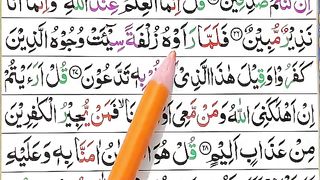 اِنْ كُنْتُمْ صٰدِقِيْنَ قُلْ اِنَّمَا الْعِلْمُ عِنْدَ اللّٰهِ وَاِنَّمَاۤ اَنَا
نَذِيْرٌ مُّبِيْنٌ ۝٢٦ فَلَمَّا رَاَوْهُ زُلْفَةً سِيْٓـَٔتْ وُجُوْهُ الَّذِيْنَ
كَفَرُوْا وَقِيْلَ هٰذَا الَّذِيْ بِهٖ تَدَّعُوْنَ ۝٢٧ قُلْ اَرَءَيْتُمْ
اِنْ اَهْلَكَنِيَ اللّٰهُ وَمَنْ مَّعِيَ فَمَنْ يُّجِيْرُ الْكٰفِرِيْنَ
مِنْ عَذَابٍ اَلِيْمٍ ۝٢٨ قُلْ هُوَ اٰمَنَّا بِهٖ وَعَلَيْهِ